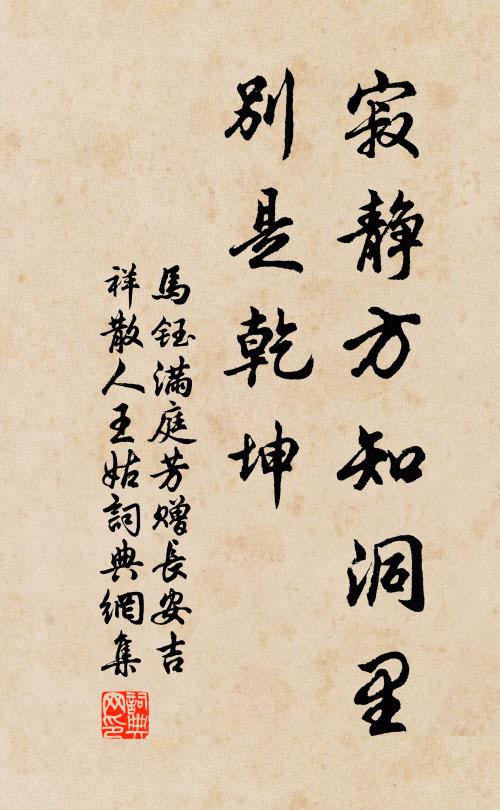 寂静方知洞里
别是乾坤
馬鈺满庭芳赠長安吉
祥散人王姑詞典網集
詞典
网印